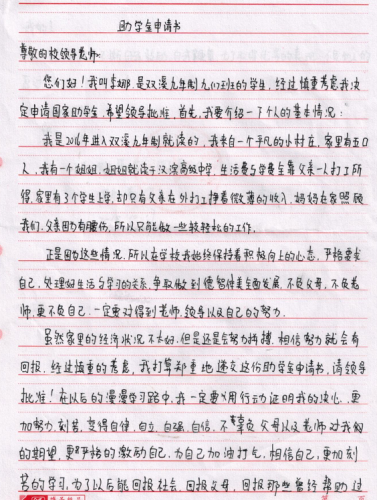 助学金申请书
尊敬的校领导老师:
您们好!我叫李娜,是双溪九年制九(1)班的学生,经过慎重考虑我决
定申请国家助学金,希望领导批准,首先,我要介绍一下个人的基本情况:
我是2016年进入双溪九年制就读的,我来自一个平凡的小村庄,家里有五口
人,我有一个姐姐,姐姐就读于汉滨高级中学,生活费与学费全靠父亲一人打工所
得,家里有3个学生上学,却只有父亲在外打工挣着微薄的收入,妈妈在家照顾
我们,父亲因为有腰伤,所以只能做一些较轻松的工作。
正是因为这些情况,所以在学校我始终保持着积极向上的心态,严格要求
自己,处理好生活与学习的关系,争取做到德智体美全面发展,不负父母,不负老
师,更不负自己,一定要对得到老师,领导以及自己的努力。
虽然家里的经济状况不太好,但是还是会努力拼搏,相信努力就会有
回报,经过慎重的考虑,我打算郑重地递交这份助学金申请书,请领导
批准!在以后的漫漫学习路中,我一定要用行动证明我的决心,更
加努力,刻苦,变得自律,自立,自强,自信,不辜负父母以及老师对我们
的期望,更严格的激励自己,为自己加油打气,相信自己,更加刻
苦的学习,为了以后能回报社会,回报父母,回报那些曾经帮助过